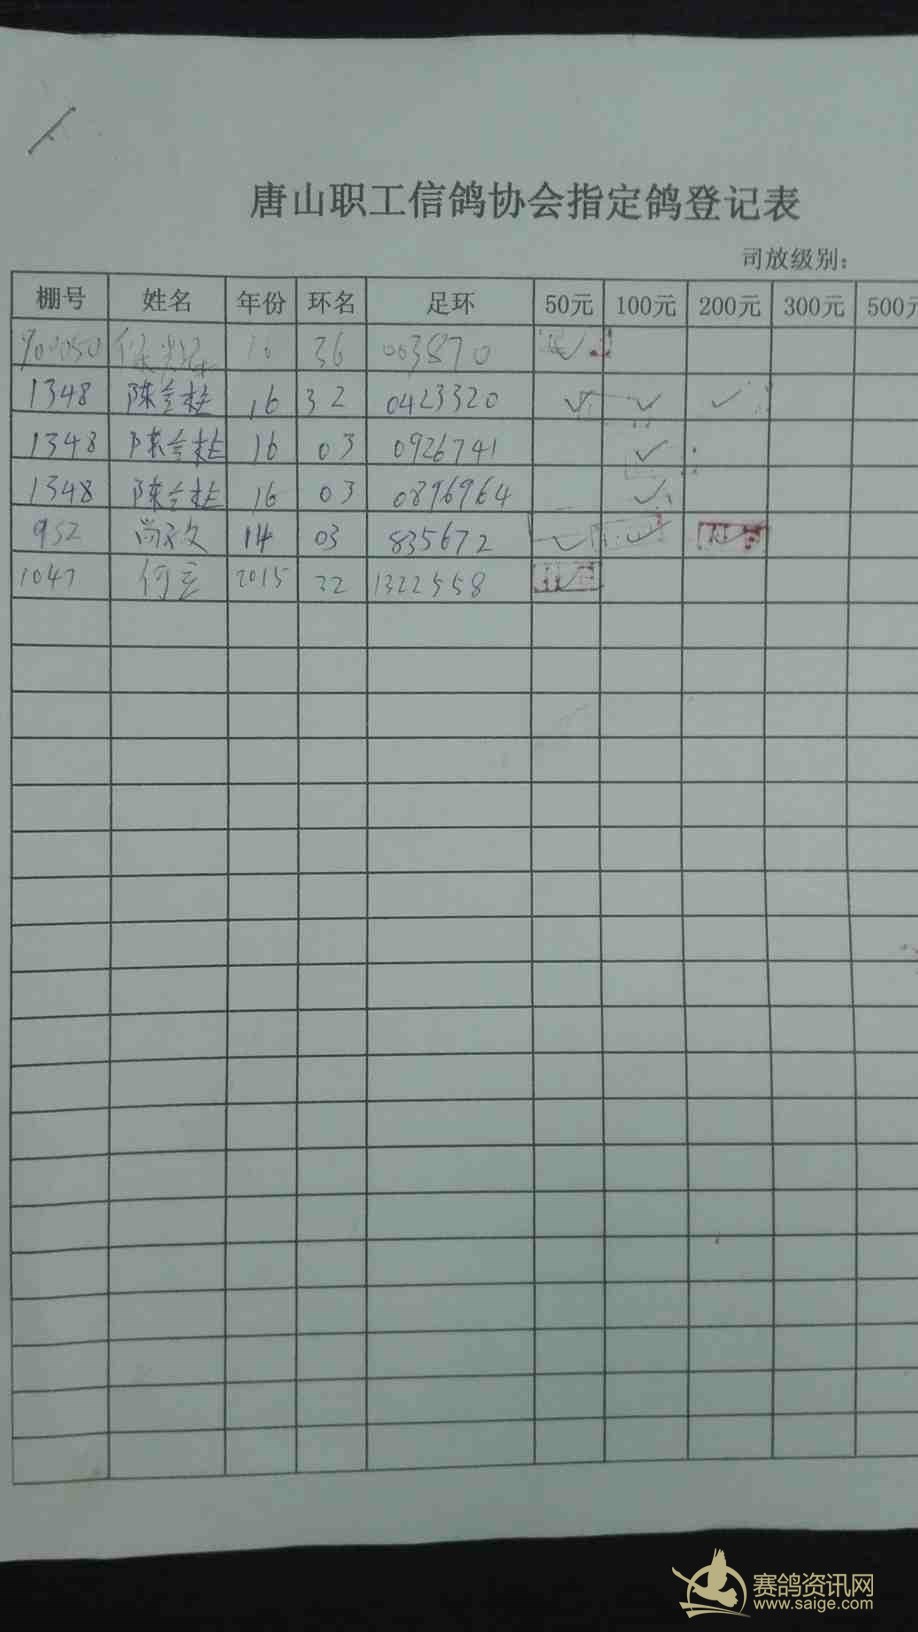 唐山职工信鸽协会指定鸽登记表
司放级别:
棚号 姓名 年份 环名 足环 50元 100元 200元 300元 500元
16 36 003870 ✓
1348 陈兰柱 16 32 0423320 ✓ ✓ ✓
1348 陈兰柱 16 03 0926741 ✓
1348 陈兰柱 16 03 0896964 ✓
952 14 03 835672 ✓ ✓ ✓
1047 何 2015 22 1322558 ✓
赛鸽资讯网
www.saige.com